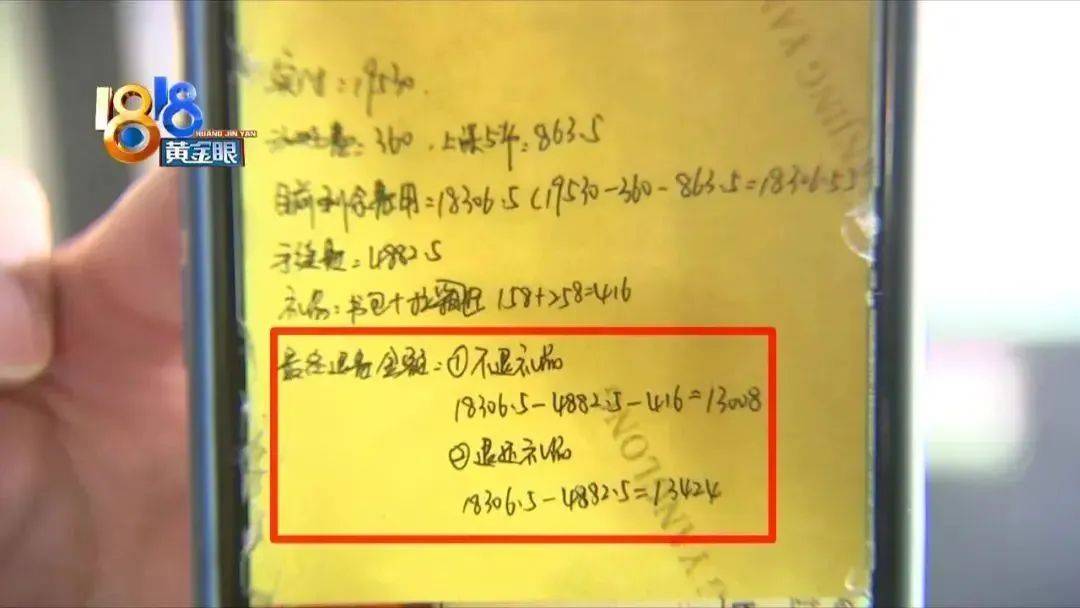 1818
HUANG JIN YAN
黄金眼
实付:19530.
360.上课5节:863.5
目前剩余费用=18306.5(19530-360-863.5=18306.5)
手续费:4882.5
礼品:书包+拉 158+258=416
最终退费金额:①不退礼品
18306.5-4882.5-416=13008
②退还礼品
18306.5-4882.5=13424